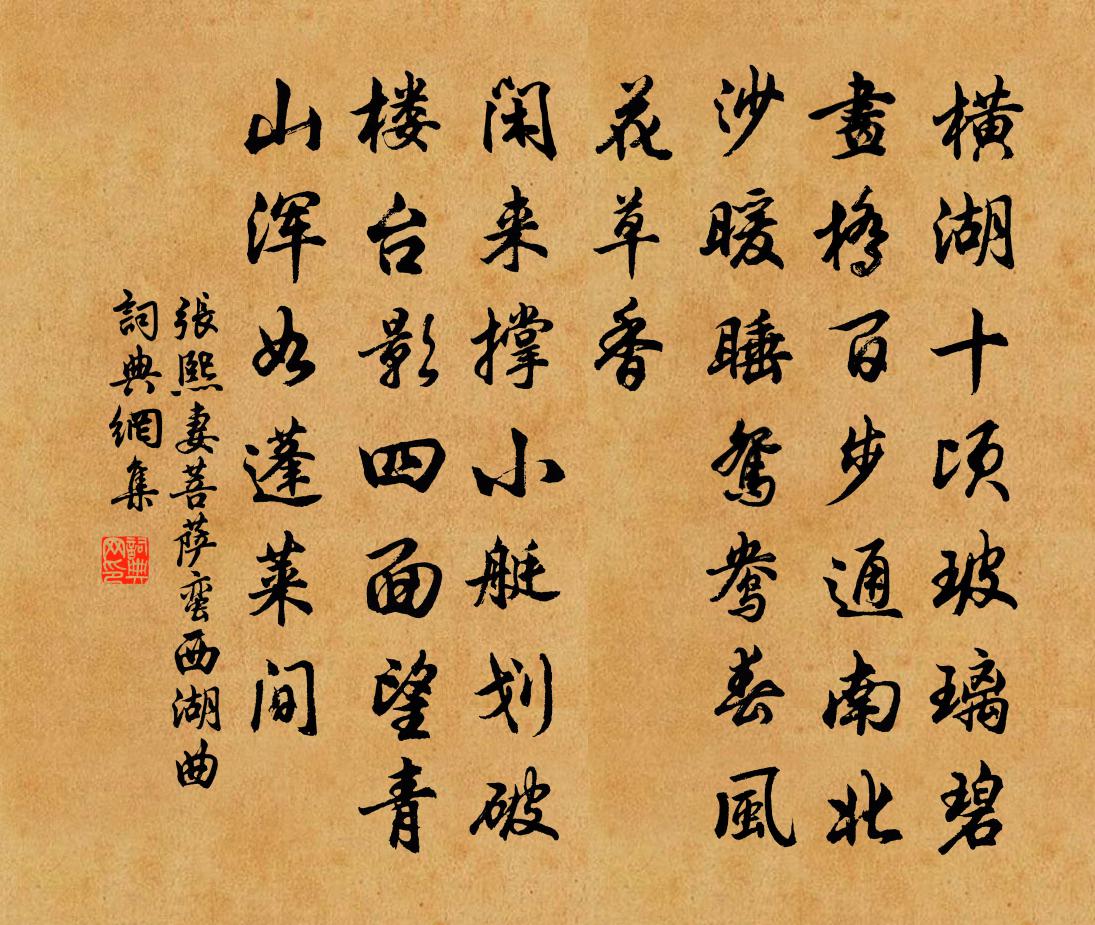 橫湖十頃玻璃碧
畫橋百步通南北
沙暖睡鴛鴦春風
花草香
閑来撐小艇划破
楼台影四面望青
山浑如蓬莱间
張熙妻菩萨蛮西湖曲
詞典網集
詞典网印